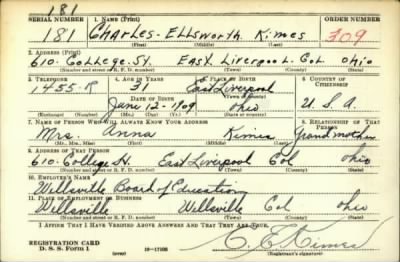 181
SERIAL NUMBER 1. NAME (Print) ORDER NUMBER
181 Charles - Ellsworth Kimes 309
(First) (Middle) (Last)
2. ADDRESS (Print)
610. College. St. East Liverpool. Col Ohio
(Number and street or R. F. D. number) (Town) (County) (State)
3. TELEPHONE 4. AGE IN YEARS 5. PLACE OF BIRTH 6. COUNTRY OF CITIZENSHIP
1455-R 31 East Liverpool
DATE OF BIRTH (Town or county)
June 12 - 1909 Ohio U.S.A.
(Exchange) (Number) (Mo.) (Day) (Yr.) (State or country)
7. NAME OF PERSON WHO WILL ALWAYS KNOW YOUR ADDRESS 8. RELATIONSHIP OF THAT PERSON
Mrs. Anna Kimes Grandmother
(Mr., Mrs., Miss) (First) (Middle) (Last)
9. ADDRESS OF THAT PERSON
610. College St. East Liverpool Col Ohio
(Number and street or R. F. D. number) (Town) (County) (State)
10. EMPLOYER'S NAME
Wellsville Board of Education
11. PLACE OF EMPLOYMENT OR BUSINESS
Wellsville Wellsville Col Ohio
(Number and street or R. F. D. number) (Town) (County) (State)
I AFFIRM THAT I HAVE VERIFIED ABOVE ANSWERS AND THAT THEY ARE TRUE.
REGISTRATION CARD
D. S. S. Form 1 (over) 16-17105 C. E. Kimes
(Registrant's signature)